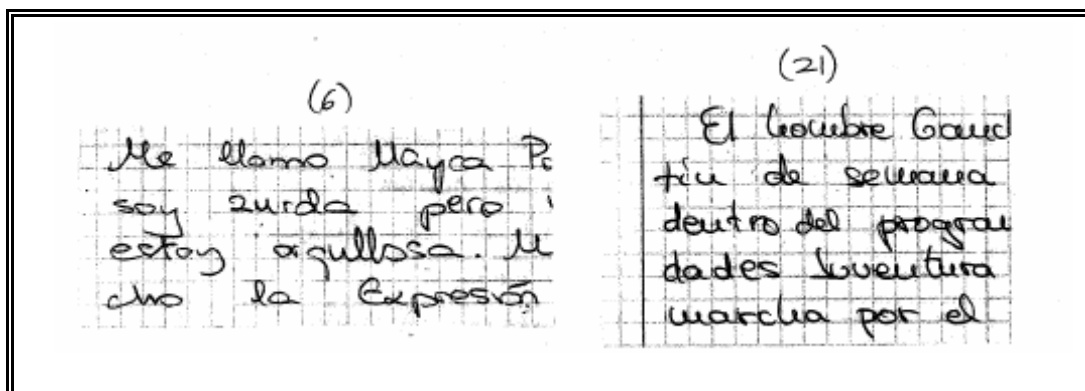 (6)
Me llamo Mayca
soy zurda pero
estoy orgullosa. M
cho la Expresión
(21)
El hombre
fin de semana
dentro del progra
dades Juventura
marcha por el